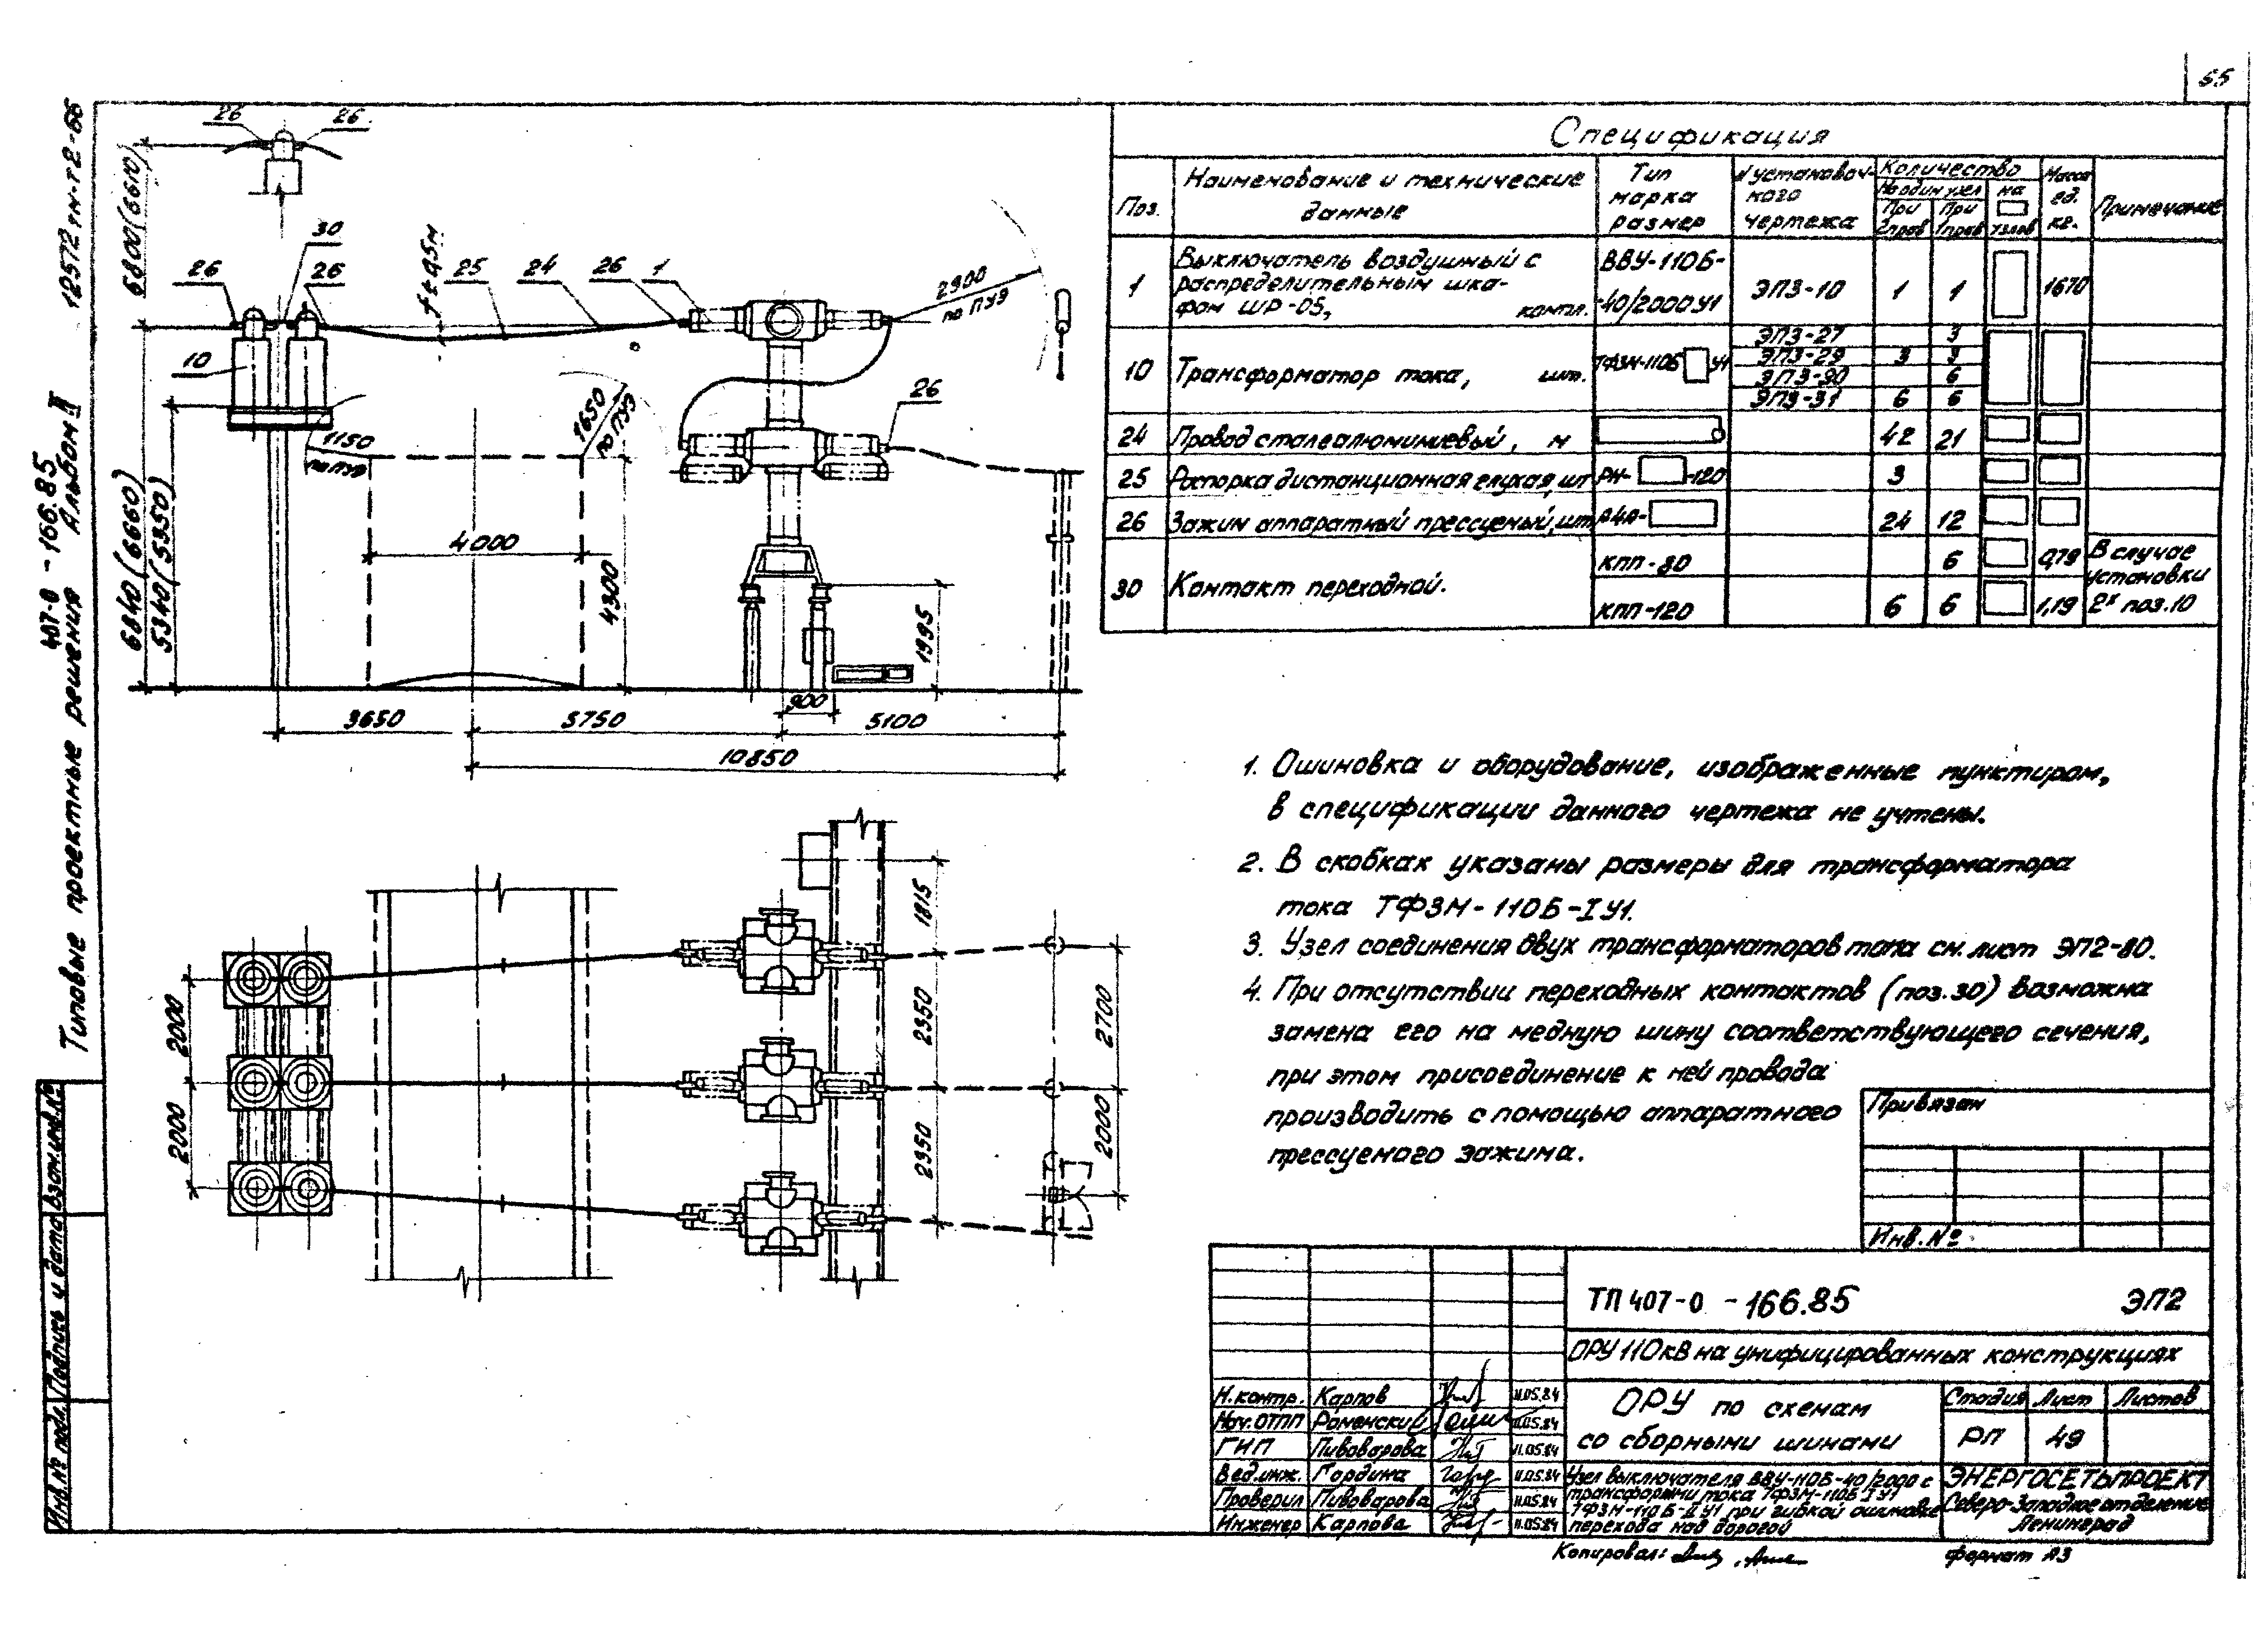 55
Типовые проектные решения 407-0-166.85 Альбом II 12572тм-т2-56
26 26
6800(6610)
30
26 26 f≤0,5м 25 24 26 1
2900
по ПУЭ
10
1150
по ПУЭ
1650
по ПУЭ
26
4000
6840(6660)
5340(5350)
4300
1995
900
3650 5750 5100
10850
1815
2000 2350 2700
2000 2350 2000
Спецификация
Поз. Наименование и технические данные Тип марка размер № установочного чертежа Количество Масса ед. кг. Примечание
На один узел на узлов
При 2 пров При 1 пров
1 Выключатель воздушный с распределительным шкафом ШР-05, компл. ВВУ-110Б-40/2000У1 ЭП3-10 1 1 1670
10 Трансформатор тока, шт. ТФЗМ-110Б У1
ЭП3-27 3
ЭП3-29 3 3
ЭП3-30 6
ЭП3-31 6 6
24 Провод сталеалюминиевый, м 42 21
25 Распорка дистанционная глухая, шт РН- -120 3
26 Зажим аппаратный прессуемый, шт А4А- 24 12
30 Контакт переходной. КПП-80 6 0,79 В случае
установки
КПП-120 6 6 1,19 2х поз.10
1. Ошиновка и оборудование, изображенные пунктиром,
в спецификации данного чертежа не учтены.
2. В скобках указаны размеры для трансформатора
тока ТФЗМ-110Б-IУ1.
3. Узел соединения двух трансформаторов тока см. лист ЭП2-80.
4. При отсутствии переходных контактов (поз.30) возможна
замена его на медную шину соответствующего сечения,
при этом присоединение к ней провода
производить с помощью аппаратного
прессуемого зажима.
Привязан
Инв.№
ТП 407-0-166.85 ЭП2
ОРУ 110кВ на унифицированных конструкциях
Н.контр. Карпов 11.05.84
Нач.ОТПП Роменский 11.05.84
ГИП Пивоварова 11.05.84
Вед.инж. Гордина 11.05.84
Проверил Пивоварова 11.05.84
Инженер Карпова 11.05.84
ОРУ по схемам
со сборными шинами
Стадия Лист Листов
РП 49
Узел выключателя ВВУ-110Б-40/2000 с
трансформ. тока ТФЗМ-110Б-IУ1
ТФЗМ-110Б-IIУ1 при гибкой ошиновке
перехода над дорогой
ЭНЕРГОСЕТЬПРОЕКТ
Северо-Западное отделение
Ленинград
Копировал:
формат А3
Инв.№ подл. Подпись и дата Взам.инв.№